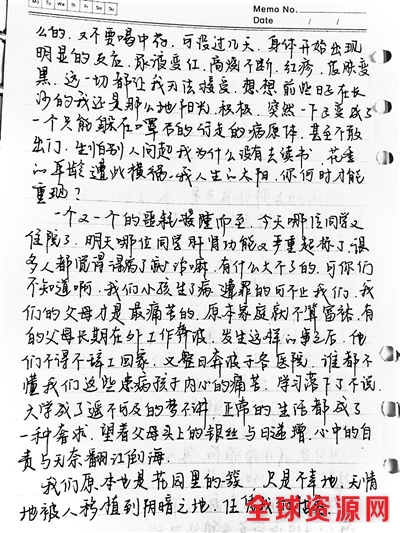 Mo Tu We Th Fr Sa Su
Memo No.
Date / /
么的,又不要喝中药,可没过几天,身体开始出现
明显的反应,尿液变红,高烧不断,红疹,皮肤变
黑,这一切都让我无法接受,想想前些日子在长
沙的我还是那么地阳光,积极,突然一下子变成了
一个只能躲在口罩后的行走的病原体,甚至不敢
出门,生怕别人问起我为什么没有去读书,花季
的年龄遭此横祸,我人生的太阳,你何时才能
重现?
一个又一个的噩耗接踵而至,今天哪位同学又
住院了,明天哪位同学肝肾功能又严重超标了,很
多人都觉得得病了就治嘛,有什么大不了的,可你们
不知道啊,我们小孩生了病遭罪的可不止我们,我
们的父母才是最痛苦的,原本家庭就不算富裕,有
的父母长期在外工作奔波,发生这样的事之后,他
们不得不辞工回家,又整日奔波于各医院,谁都不
懂我们这些患病孩子内心的痛苦,学习落下了不说,
大学成了遥不可及的梦不讲,正常的生活都成了
一种奢求,望着父母头上的银丝与日递增,心中的自
责与无奈翻江倒海。
我们原本也是花园里的
只是不幸地,无情
地被人移植到阴暗之地,任
全球资源网